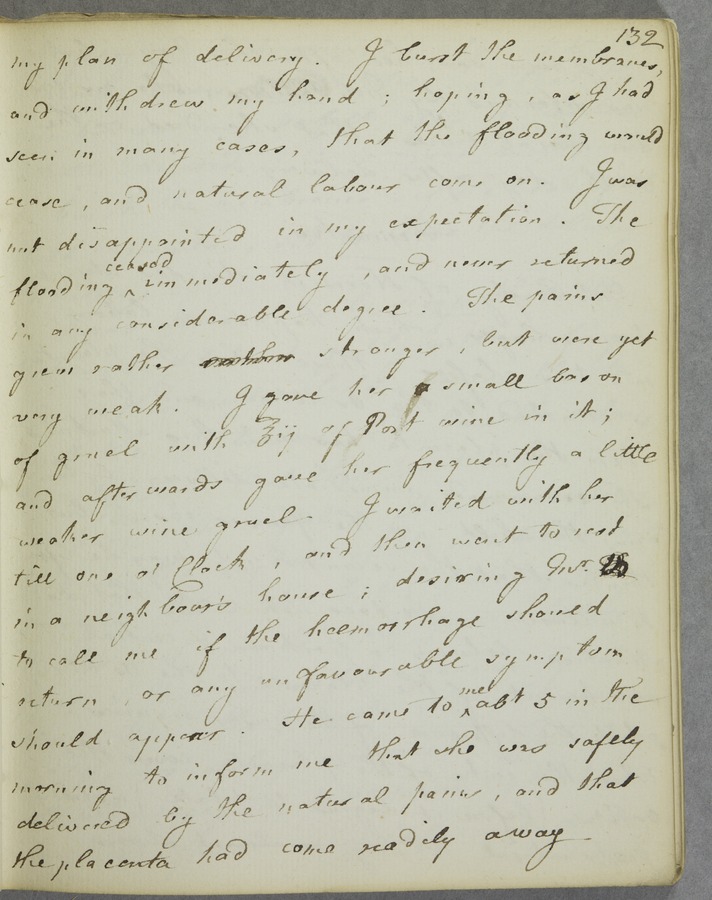 132
my plan of delivery. I burst the membranes,
and withdrew my hand; hoping, as I had
seen in many cases, that the flooding would
cease, and natural labour come on. I was
not disappointed in my expectation. The
ceased
flooding ^ immediately, and never returned
in any considerable degree. The pains
grew rather stronger, but were yet
very weak. I gave her a small bason
of gruel with ʒij of Port wine in it;
and afterwards gave her frequently a little
weaker wine gruel. I waited with her
till one o' Clock, and then went to rest
in a neighbour's house; desiring Mr.
to call me if the hæmorrhage should
return, or any unfavourable symptom
me
should appear. He came to ^ abt 5 in the
morning to inform me that she was safely
delivered by the natural pains, and that
the placenta had come readily away